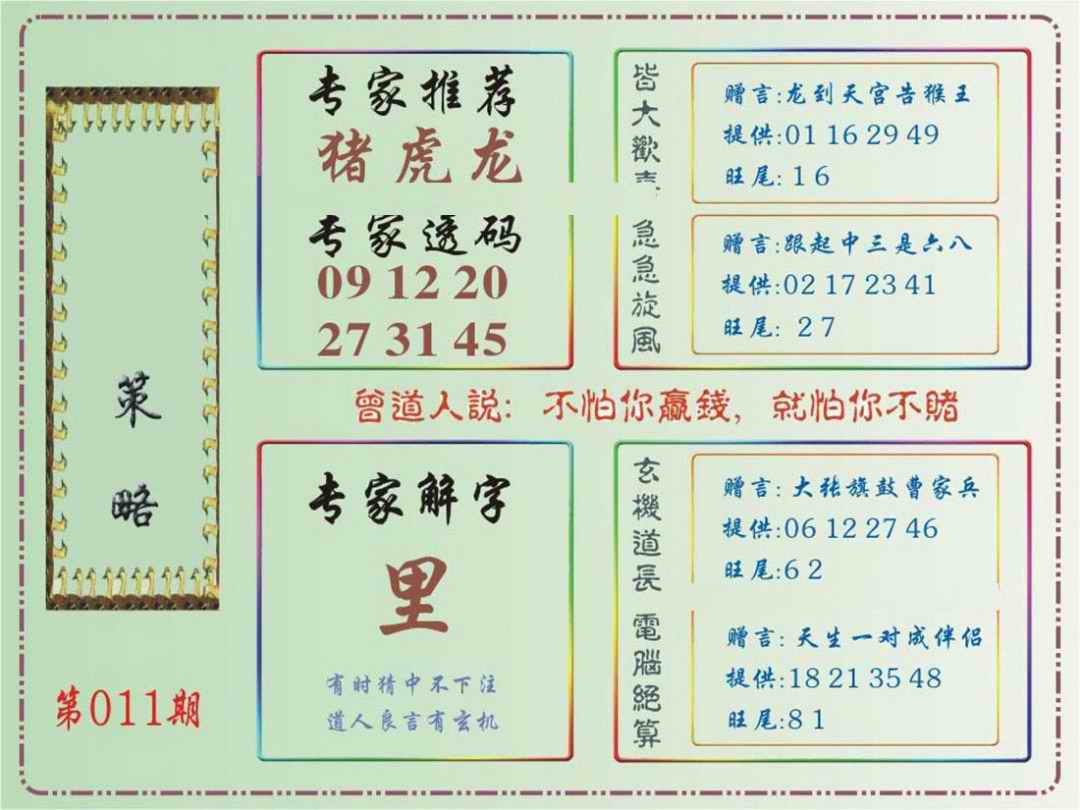 策略
第011期
专家推荐
猪虎龙
专家透码
09 12 20
27 31 45
皆大歡
赠言:龙到天宫告猴王
提供:01 16 29 49
旺尾: 1 6
急急旋風
赠言:跟起中三是六八
提供:02 17 23 41
旺尾: 2 7
曾道人説: 不怕你贏錢, 就怕你不賭
专家解字
里
有时猜中不下注
道人良言有玄机
玄機道長
赠言: 大张旗鼓曹家兵
提供:06 12 27 46
旺尾:6 2
電腦絕算
赠言: 天生一对成伴侣
提供:18 21 35 48
旺尾:8 1